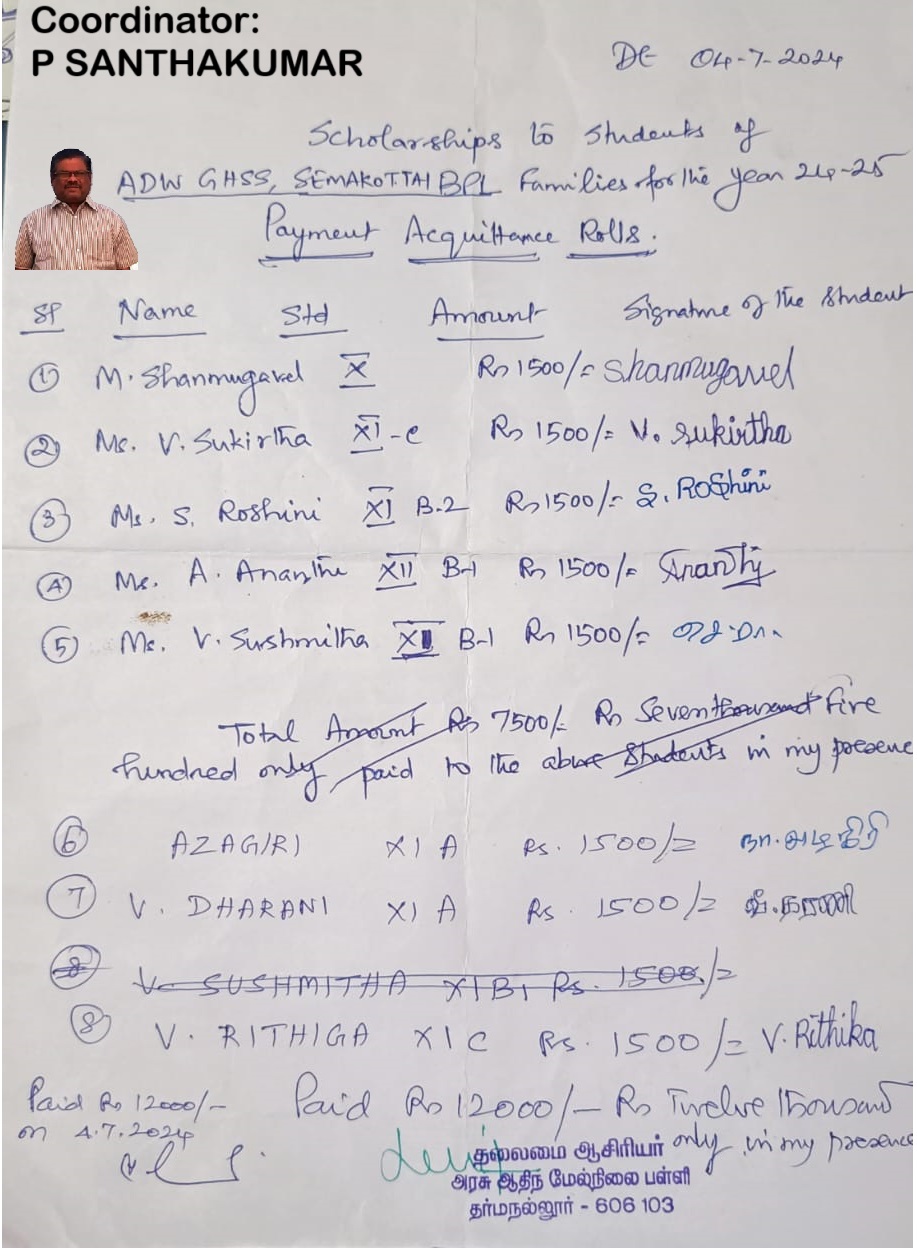 Coordinator:
P SANTHAKUMAR
Dt 04-7-2024
Scholarships to students of
ADW GHSS, SEMAKOTTAI BPL Families for the year 24-25
Payment Acquittance Rolls.
Name Std Amount Signature of the Student
1 M. Shanmugavel X Rs 1500/= Shanmugavel
2 Ms. V. Sukirtha XI-C Rs 1500/= V. Sukirtha
3 Ms. S. Roshini XI B-2 Rs 1500/= S. Roshini
4 Ms. A. Ananthe XII B-1 Rs 1500/= Ananthy
5 Ms. V. Sushmitha XII B-1 Rs 1500/=
Total Amount Rs 7500/- Rs Seven thousand Five
hundred only paid to the above Students in my presence
6 AZAGIRI XI A Rs. 1500/=
7 V. DHARANI XI A Rs. 1500/= வீ. தரணி
8 V. SUSHMITHA XI B1 Rs. 1500/=
8 V. RITHIGA XI C Rs. 1500/= V. Rithika
Paid Rs 12000/- Paid Rs 12000/- Rs Twelve thousand
on 4.7.2024 only in my presence
தலைமை ஆசிரியர்
அரசு ஆதிந மேல்நிலை பள்ளி
தர்மநல்லூர் - 606 103